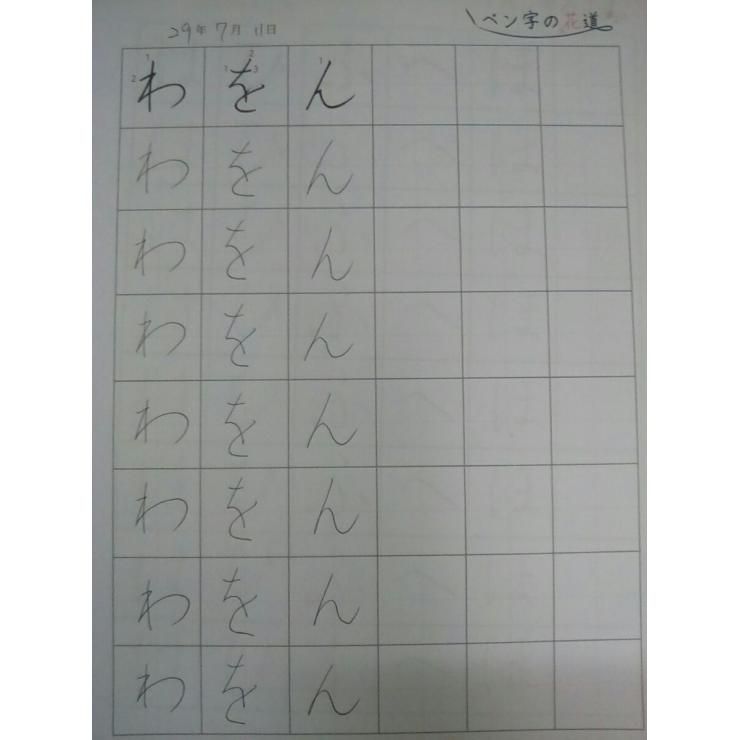 29年 7月 11日 ペン字の花道
わ を ん
わ を ん
わ を ん
わ を ん
わ を ん
わ を ん
わ を ん
わ を ん